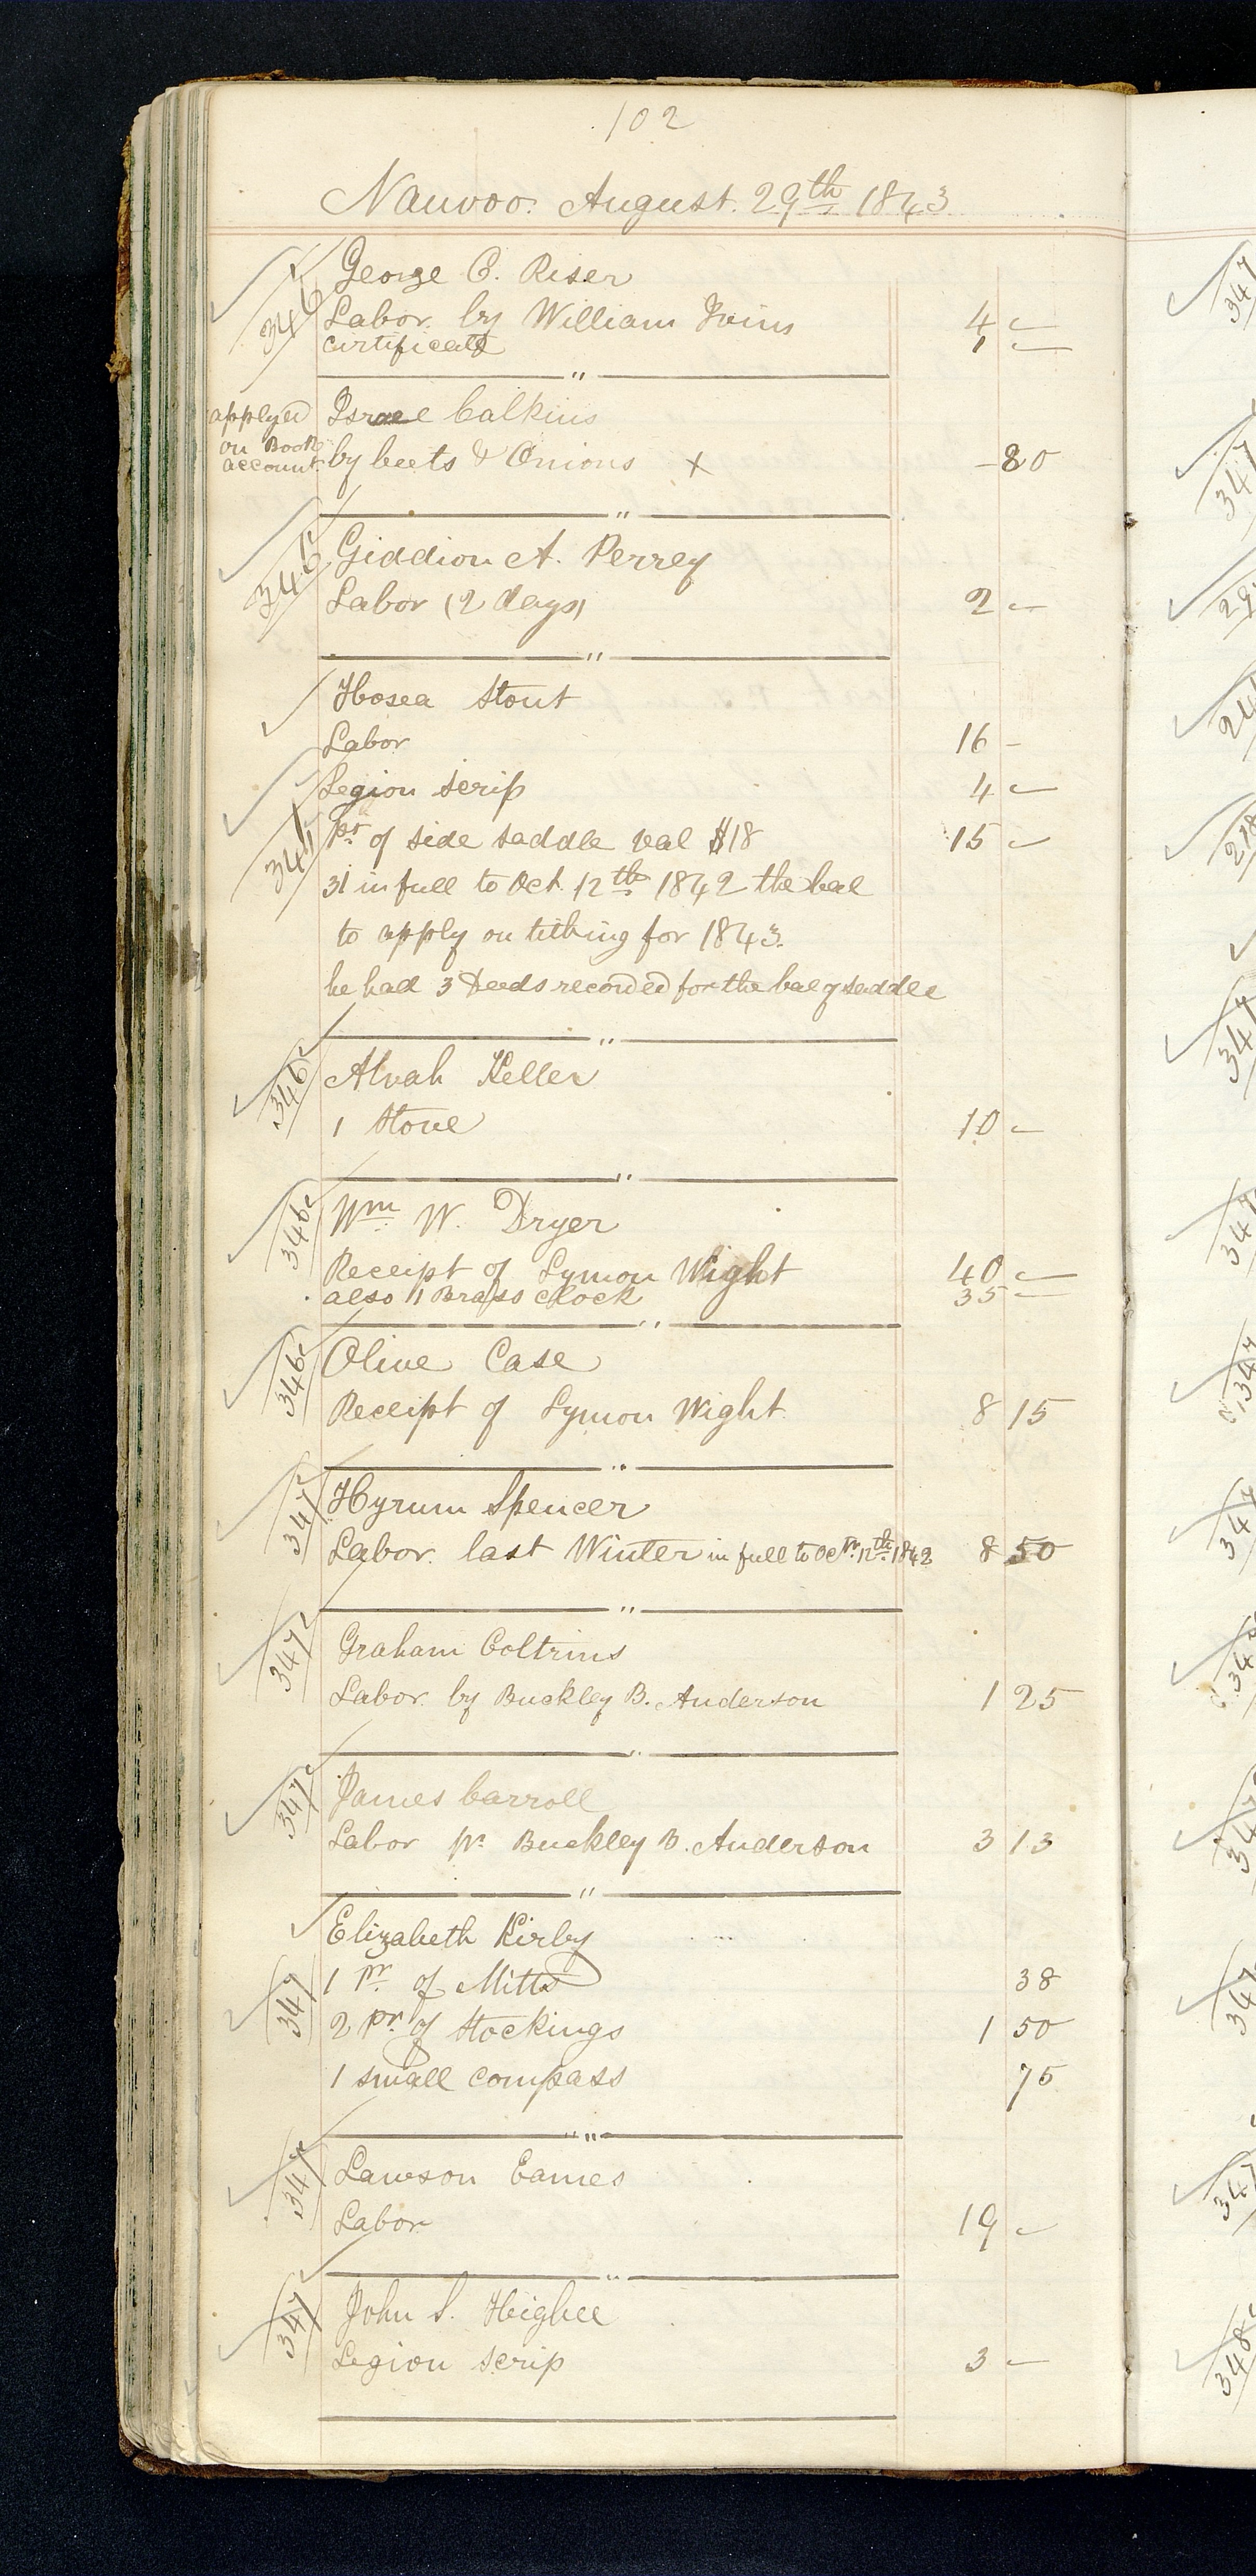 102
Nauvoo. August. 29th 1843
346 George C. Riser
Labor. by William Ivins 4 —
certificate 1 —
applyed on Book account
Israel Calkins
by beets & Onions X – 80
346 Giddion A. Perrey
Labor (2 days) 2 —
Hosea Stout
Labor 16 –
Legion Scrip 4 —
341 pr of side saddle val $18 15 —
31 in full to Oct. 12th 1842 the bal
to apply on tithing for 1843.
he had 3 Deeds recorded for the bal of saddle
346 Alvah Keller
1 Stove 10 —
346 Wm W. Dryer
Receipt of Lymon Wight 40 —
also 1 Brass clock 35 —
346 Olive Case
Receipt of Lymon Wight 8 15
347 Hyrum Spencer
Labor. last Winter in full to Octr. 12th 1842 8 50
347 Graham Coltrins
Labor. by Buckley B. Anderson 1 25
347 James Carroll
Labor pr. Buckley B. Anderson 3 13
Elizabeth Kirby
347 1 pr. of Mitts 38
2 pr. of Stockings 1 50
1 small compass 75
347 Lawson Eames
Labor 19 —
347 John S. Higbee
Legion Scrip 3 —
347
347
29
218
347
347
347
347
347
347
348